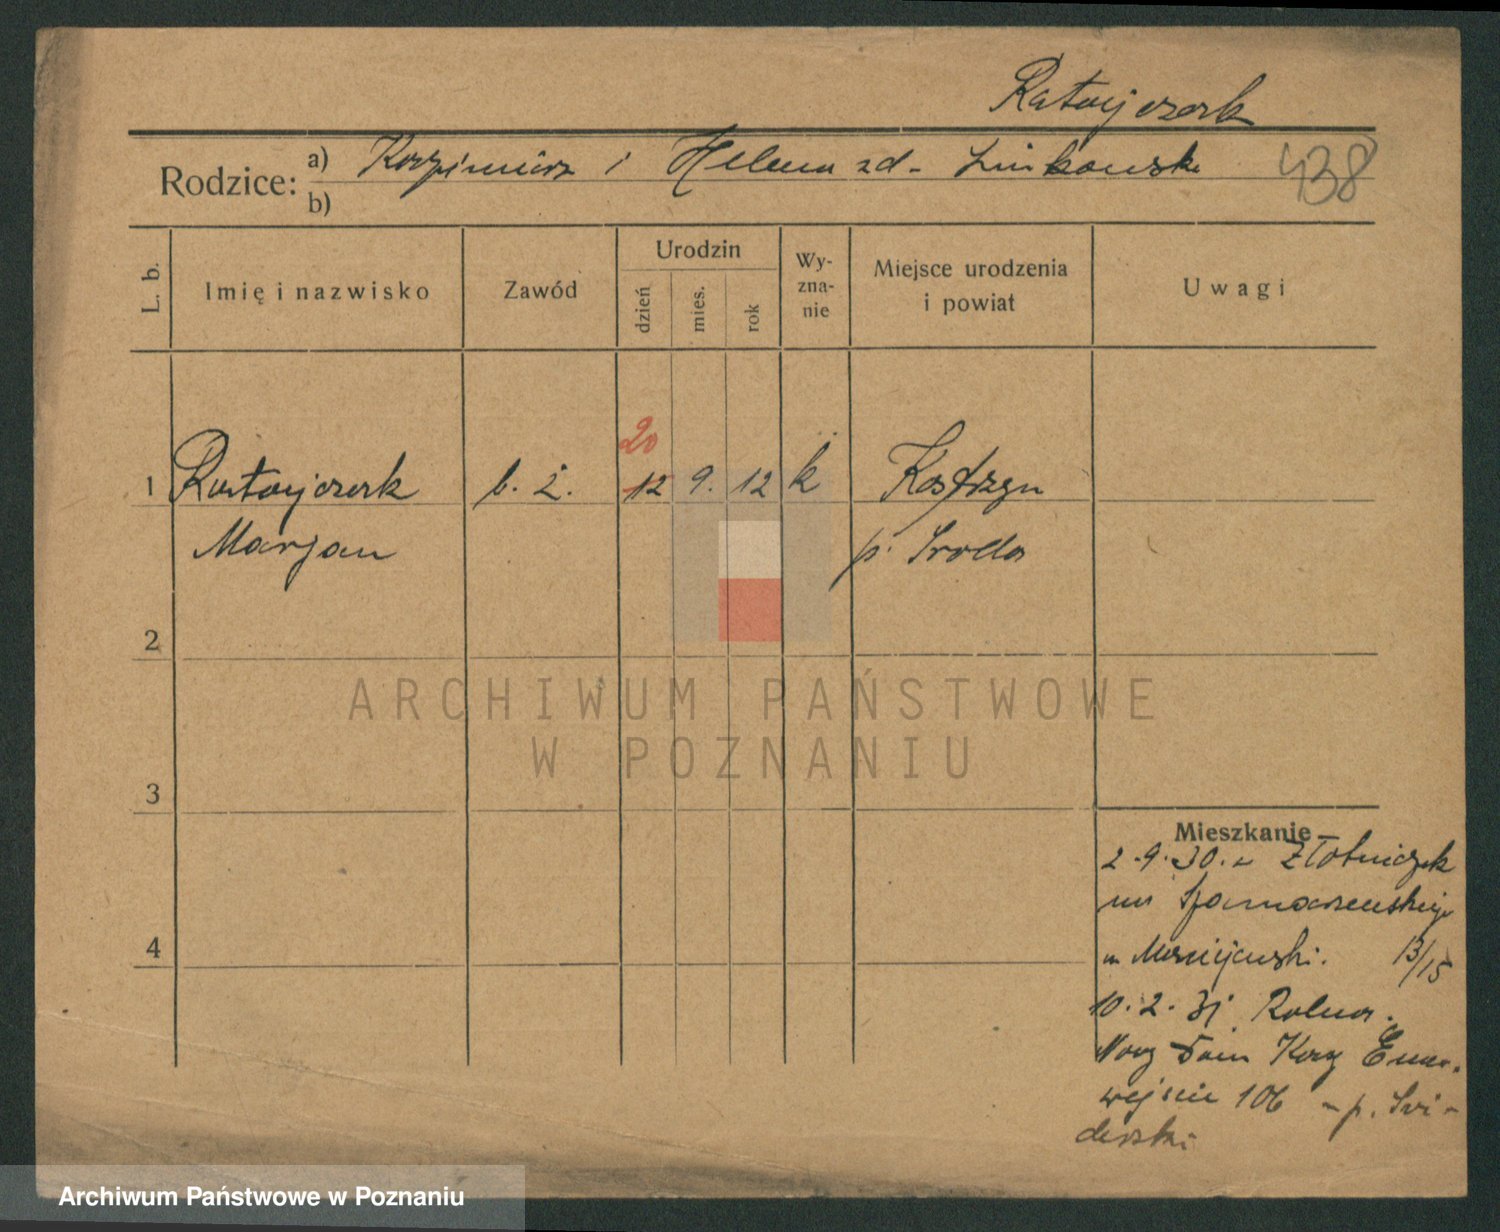 Ratajczak
Rodzice: a) Kazimierz i Helena zd. Linkowska 438
b)
L. b. Imię i nazwisko Zawód Urodzin dzień mies. rok Wyznanie Miejsce urodzenia i powiat Uwagi
20
1 Ratajczak b. ż. 12 9. 12 k Kostrzyn
Marjan p. Sroda
2
ARCHIWUM PAŃSTWOWE
W POZNANIU
3
Mieszkanie
2.9.30. Złotniczek
Szamarzewskiego
13/15
4
10.2.31 Rolna.
Nowy Dom
106 - p. Swi-
derski
Archiwum Państwowe w Poznaniu